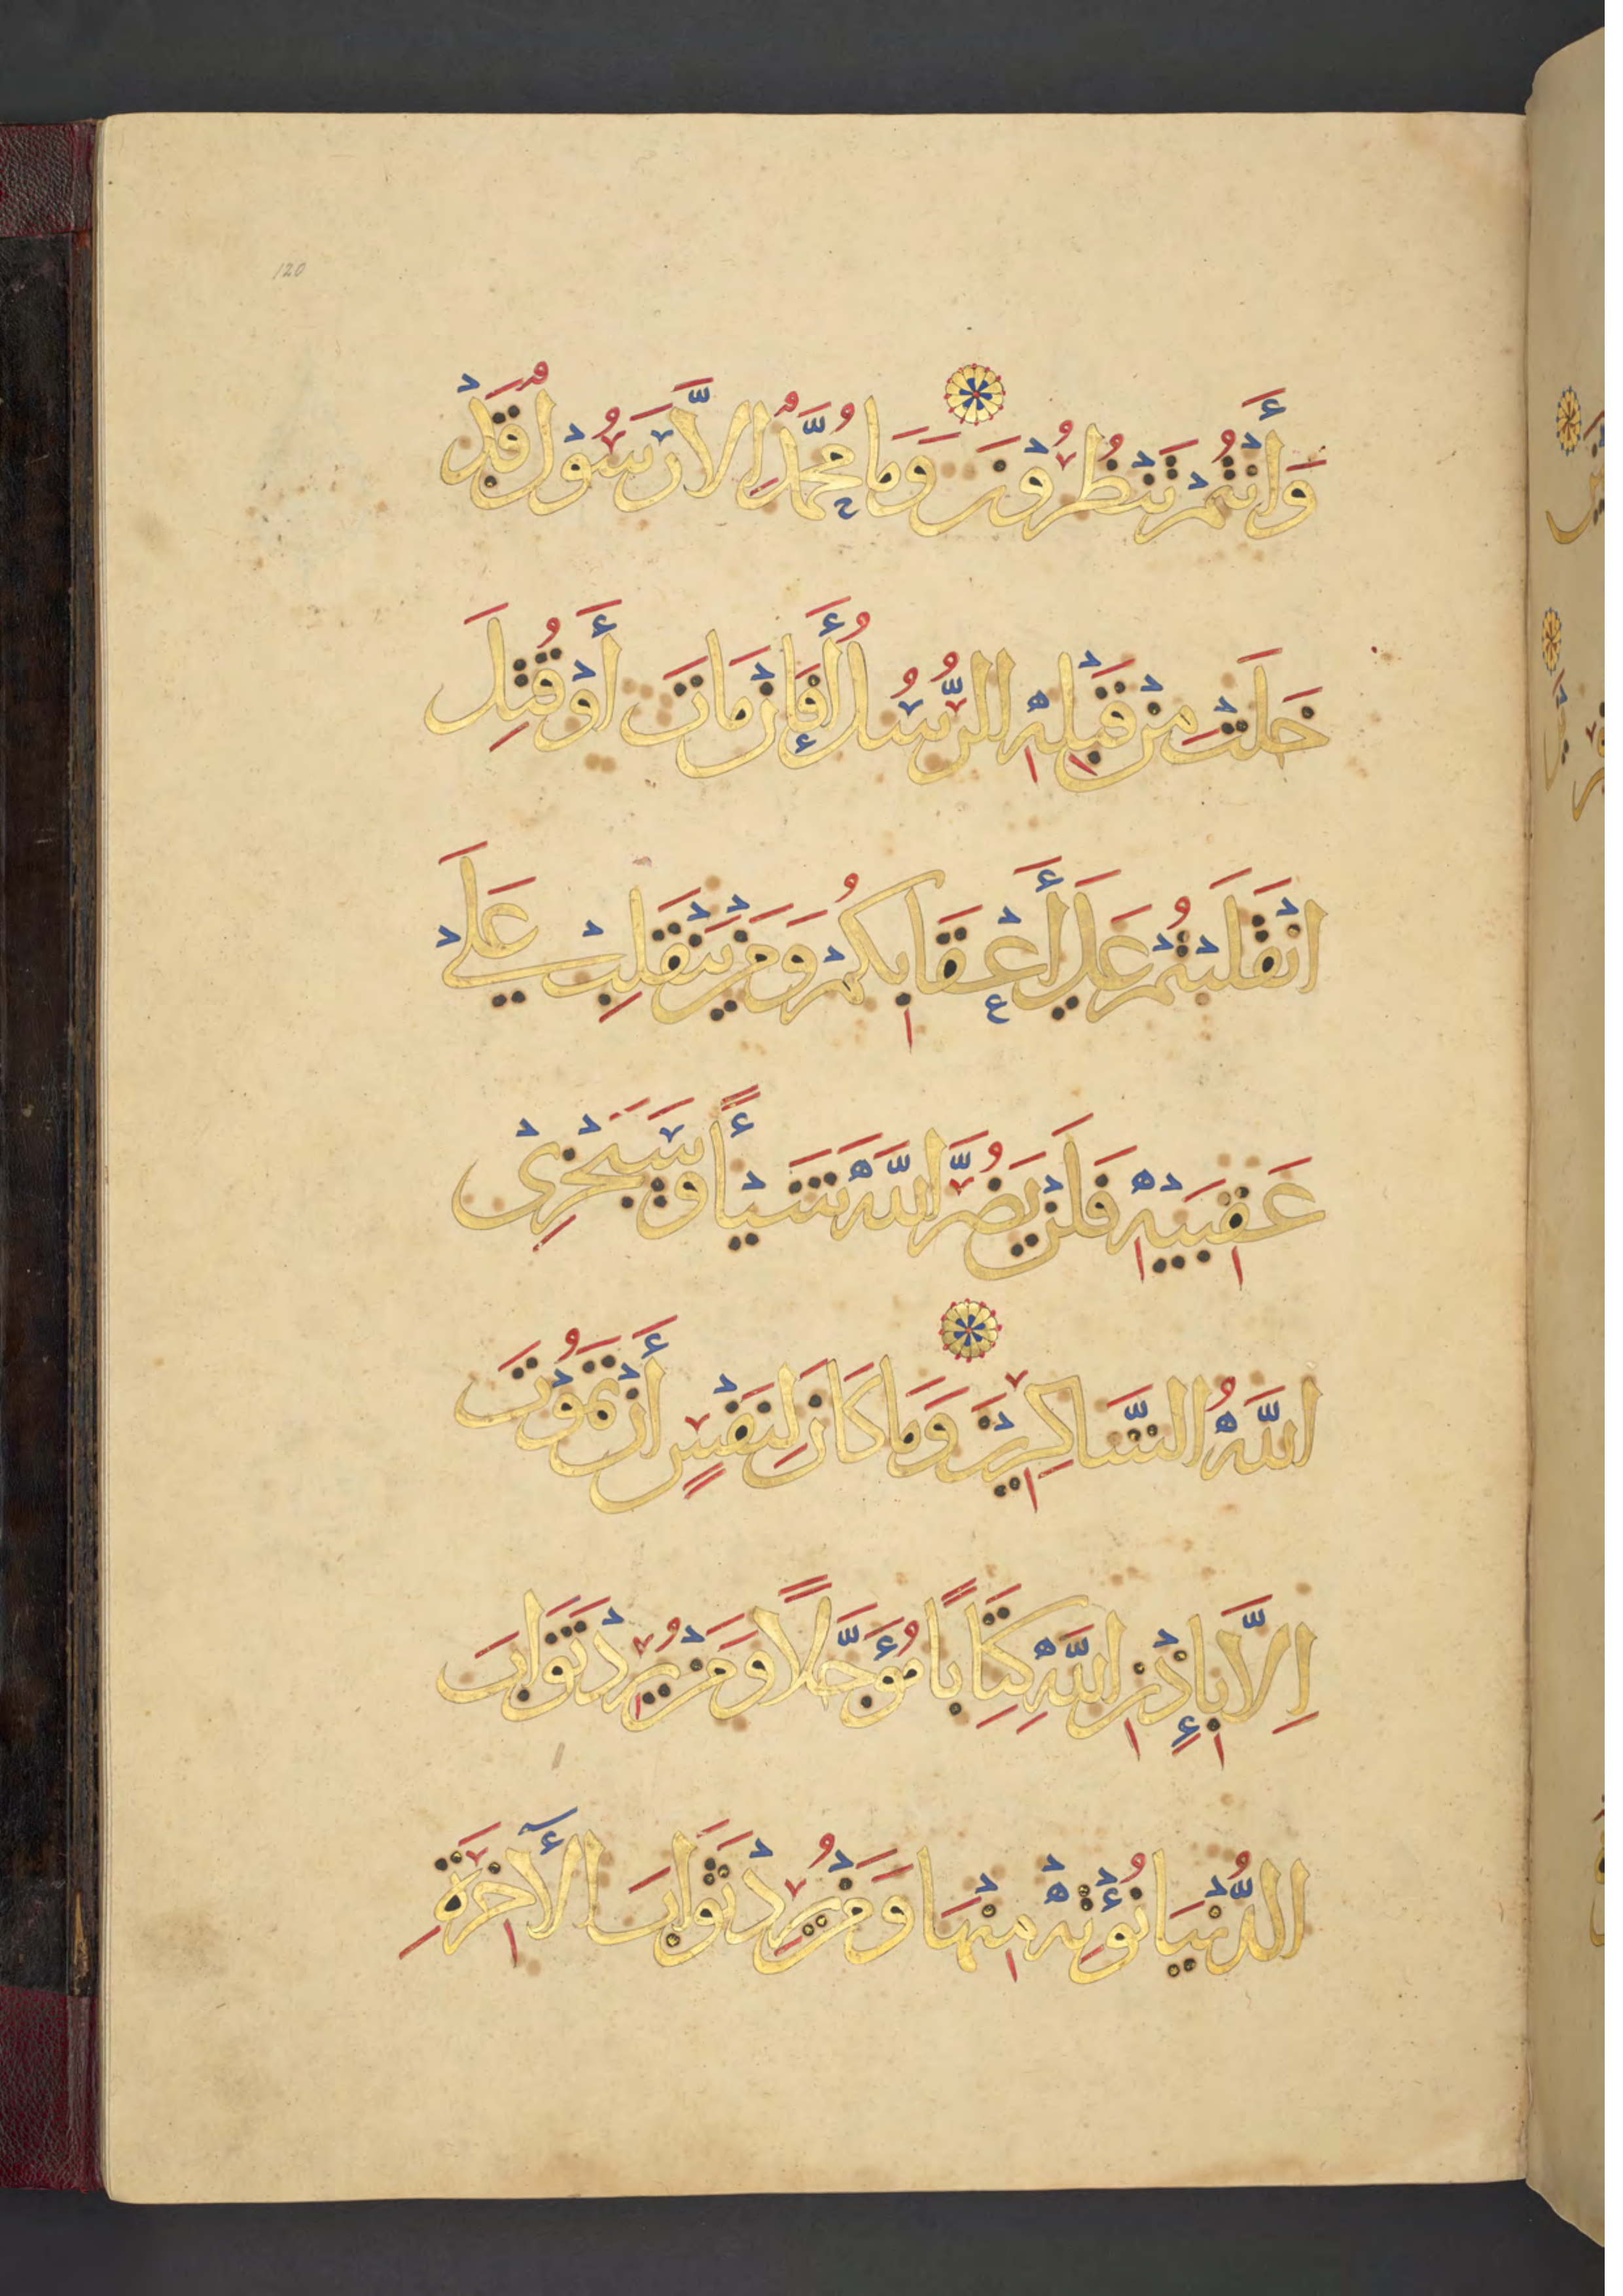 120
وَأَنْتُمْ تَنْظُرُوْنَ وَمَا مُحَمَّدٌ اِلَّا رَسُوْلٌ قَدْ
خَلَتْ مِنْ قَبْلِهِ الرُّسُلُ أَفَإِنْ مَاتَ أَوْ قُتِلَ
انْقَلَبْتُمْ عَلَى أَعْقَابِكُمْ وَمَنْ يَنْقَلِبْ عَلَى
عَقِبَيْهِ فَلَنْ يَضُرَّ اللَّهَ شَيْأً وَسَيَجْزِى
اللَّهُ الشَّاكِرِيْنَ وَمَا كَانَ لِنَفْسٍ أَنْ تَمُوْتَ
اِلَّا بِإِذْنِ اللَّهِ كِتَابًا مُؤَجَّلًا وَمَنْ يُرِدْ ثَوَابَ
الدُّنْيَا نُؤْتِهْ مِنْهَا وَمَنْ يُرِدْ ثَوَابَ الْأٓخِرَةِ